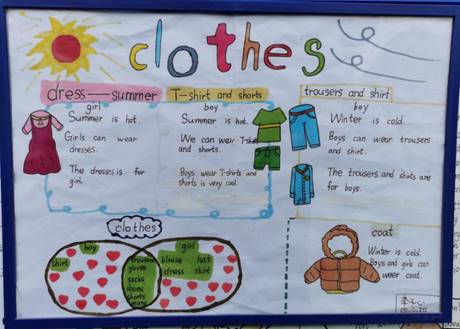 clothes
dress—summer
girl
Summer is hot.
Girls can wear
dresses.
The dresses is for
girl.
T-shirt and shorts
boy
Summer is hot.
We can wear T-shirts
and shorts.
Boys wear T-shirts and
shorts is very cool.
trousers and shirt
boy
Winter is cold.
Boys can wear trousers
and shirt.
The trousers and shirts are
for boys.
clothes
boy
shirt
trousers
gloves
socks
shoes
shorts
jeans
girl
blouse hat
dress skirt
coat
Winter is cold.
Boys and girls can
weer coat.